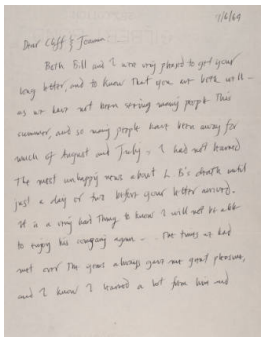 7/6/69
Dear Cliff & Joanna
Both Bill and I are very pleased to get your
long letter, and to know that you are both well -
as we have not been seeing many people this
summer, and so many people have been away for
much of August and July. I had not learned
the most unhappy news about L. B's death until
just a day or two before your letter arrived.
It is a very hard thing to know I will not be able
to enjoy his company again - . The times we had
met over the years always gave me great pleasure,
and I know I learned a lot from him and